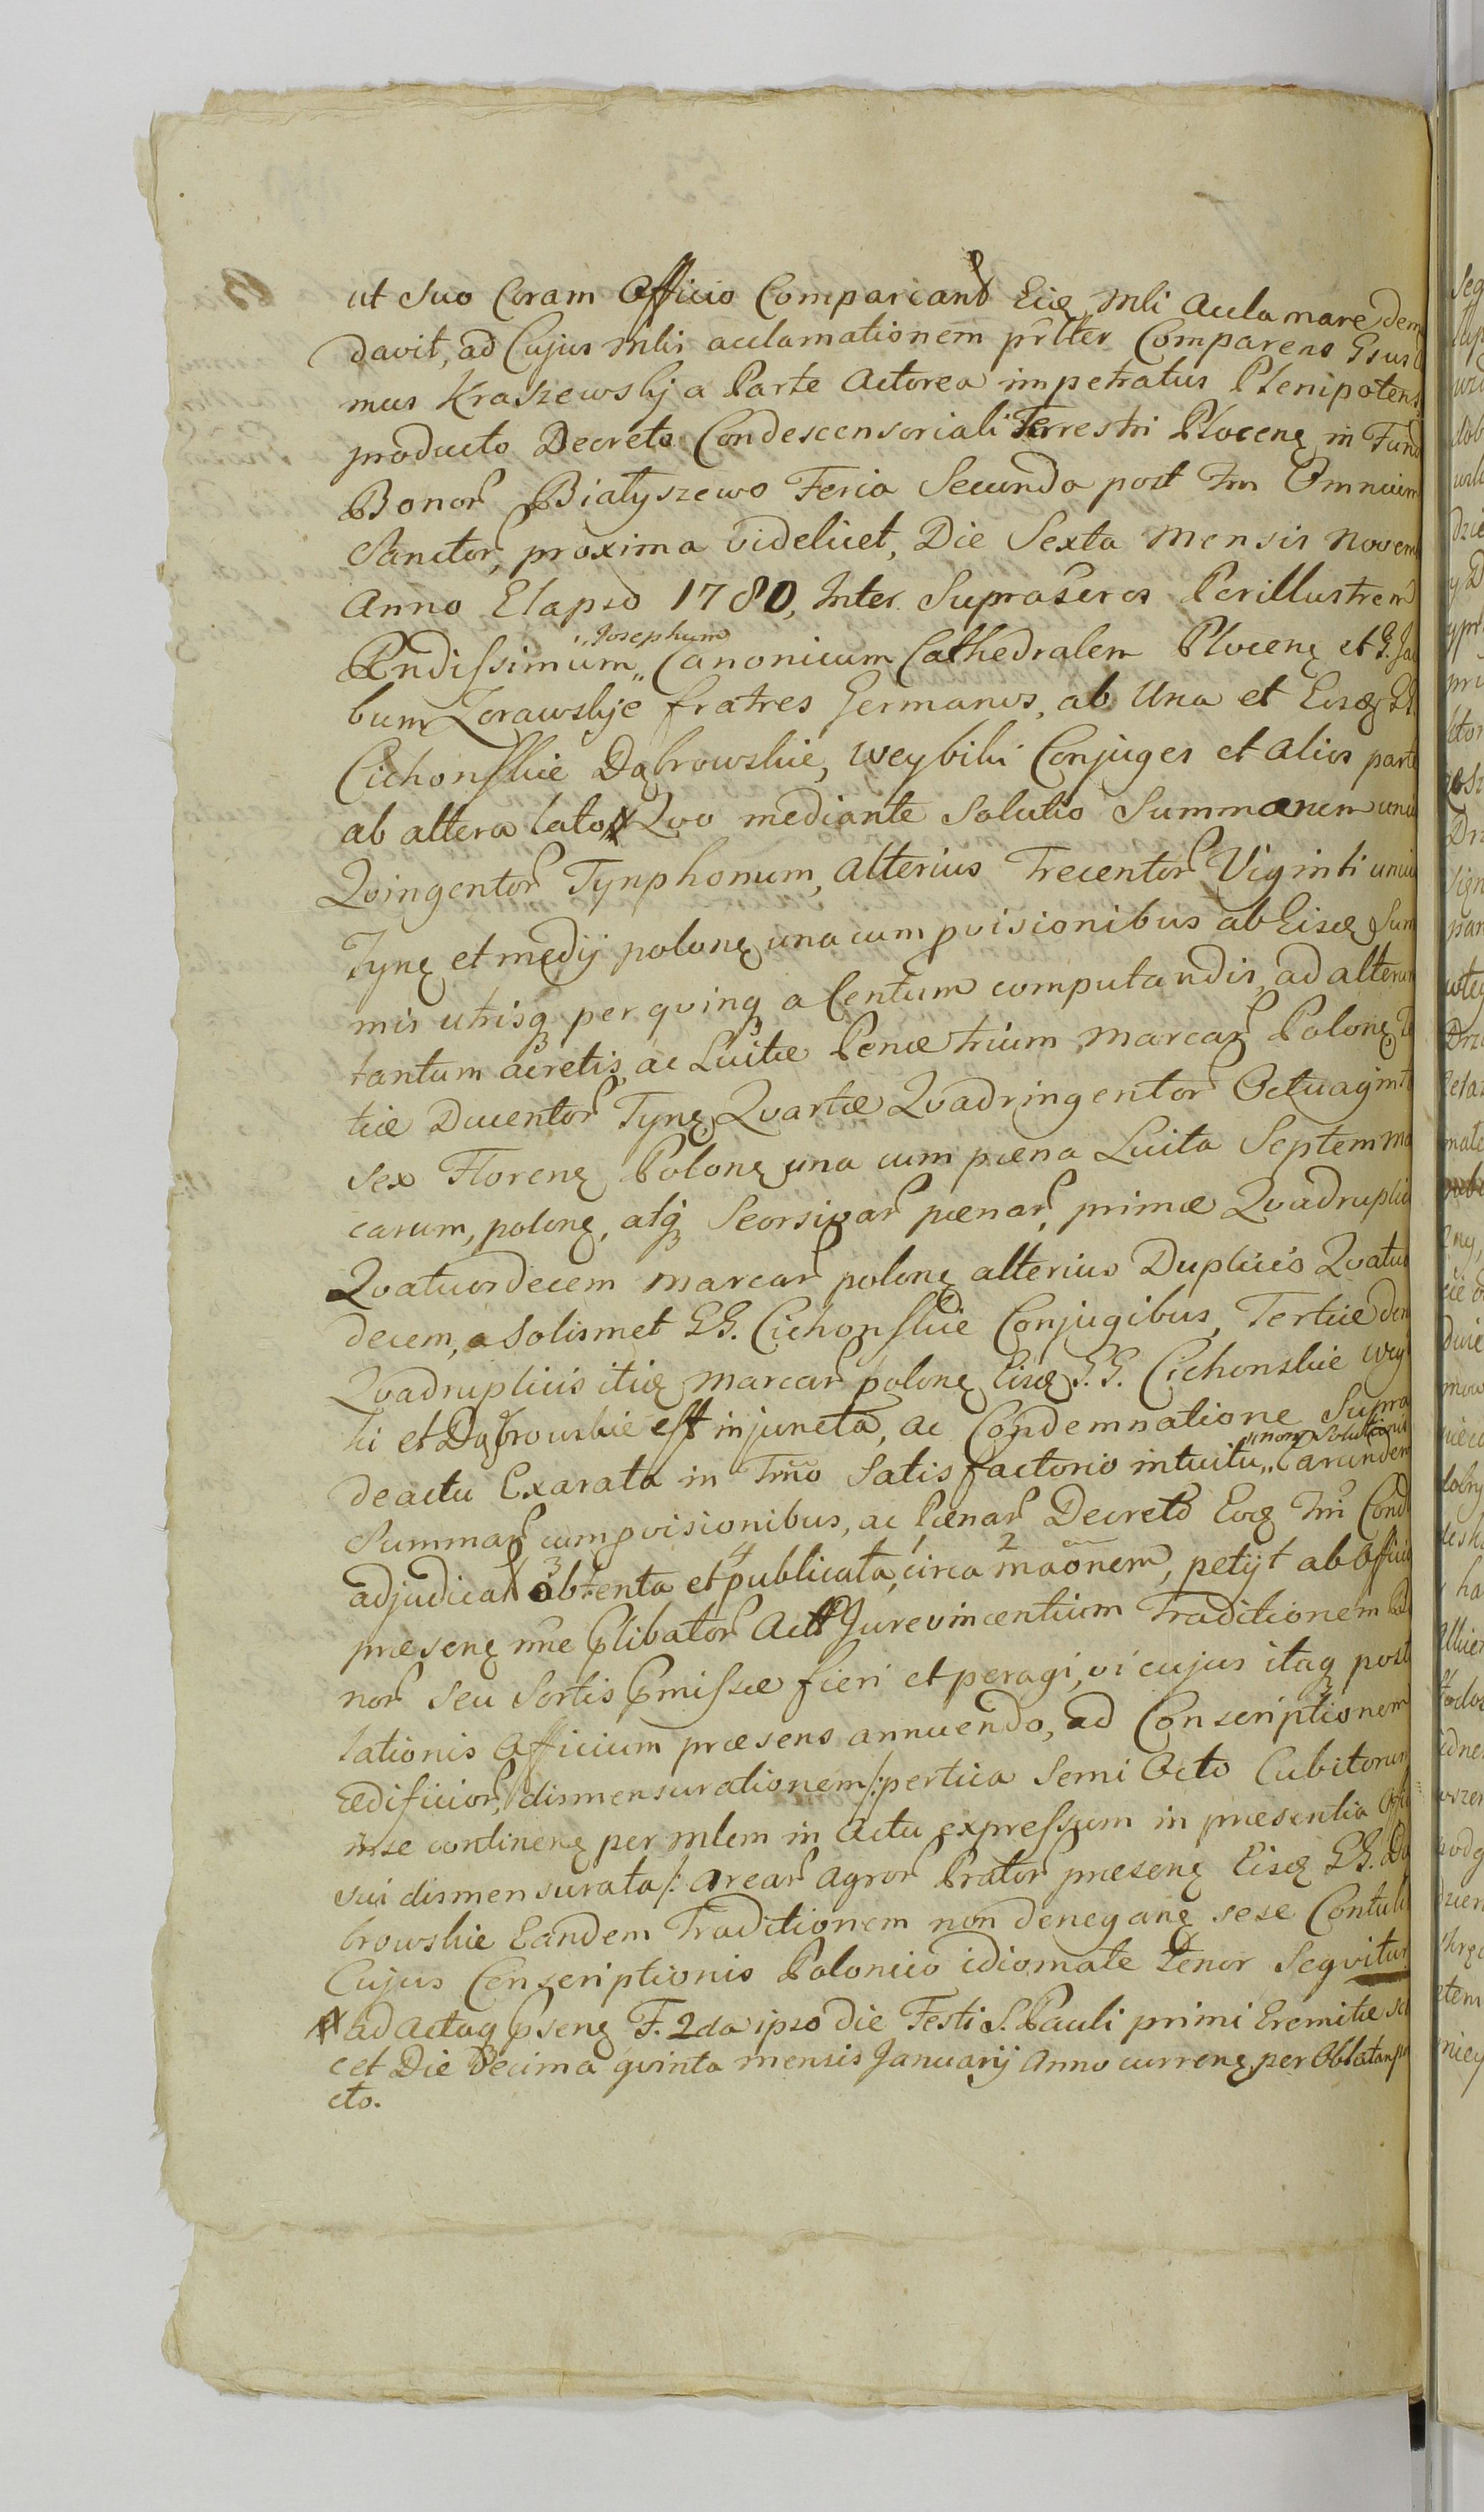 ut suo Coram Officio Compareant Eidę Mli Acclamare deman
davit, ad Cujus Mlis acclamationem prlter Comparens Gsus
mus Kraszewskj a Parte Actorea impetratus Plenipotens
producto Decreto Condescensoriali Terrestri Plocenę in Fund
Bonor Białyszewo Feria Secunda post Ftm Omnium
Sanctor, proxima videlicet, Die Sexta Mensis Novem
Anno Elapso 1780, Inter Suprascros Perillustrem
Rndissimum „Josephum„ Canonicum Cathedralem Plocenę et G. Ja
bum Zorawskje fratres Germanos, ab Una et Eosdę GG.
Cichonskie Dąbrowskie, Weybiki Conjuges et alios parte
ab altera lato # Qvo mediante Solutio Summarum unius
Qvingentor Tynphonum, alterius Trecentor Viginti unius
Tynę et medij polonę una cum pvisionibus ab Eisdę Sum
mis utrisq per qvinq a Centum computandis, ad alterum
tantum acretis, ac Luitæ Penæ trium Marcar Polonę Te
tiæ Ducentor Tynę Qvartæ Qvadringentor Octuaginta
Sex Florenę Polonę una cum pœna Luita Septem Mar
carum, polonę, atq Seorsivar pœnar, primæ Qvadruplicis
Qvatuordecem marcar polonę alterius Duplicis Qvatuor
decem, a Solismet GG. Cichonskie Conjugibus, Tertiæ dem
Qvadruplicis itidę marcar polonę Eisdę G.G. Cichonskie Wey
ki et Dąbrowskie est injuncta, ac Condemnatione Supra
de actu Exarata in Trno Satisfactorio intuitu „non Solutionis„ Earundem
Summar cum pvisionibus, ac Pœnar Decreto Eodę Trri Cond
adjudicat 3 obtenta et 4 publicata, 1 circa 2 maonem, petijt ab Officio
præsenę nne plibator Act Jurevincentium Traditionem Bo
nor seu Sortis pmissæ fieri et peragi, vi cujus itaq postu
lationis Officium præsens annuendo, ad Conscriptionem
ædificior, dismensurationem /: pertica Semi Octo Cubitorum
in se continenę per Mlem in Actu expressum in præsentia Offi
sui dismensurata /: Arear Agror Prator præsenę Eisdę GG. Dą
browskie Eandem Traditionem non denegantę sese Contulit
Cujus Conscriptionis Polonico idiomate tenor Seqvitur
# ad Actaq psenę F. 2da ipso die Festi S. Pauli primi Eremitæ sci
cet Die Decima qvinta mensis Januarij Anno currenę per Oblatam po
cto.